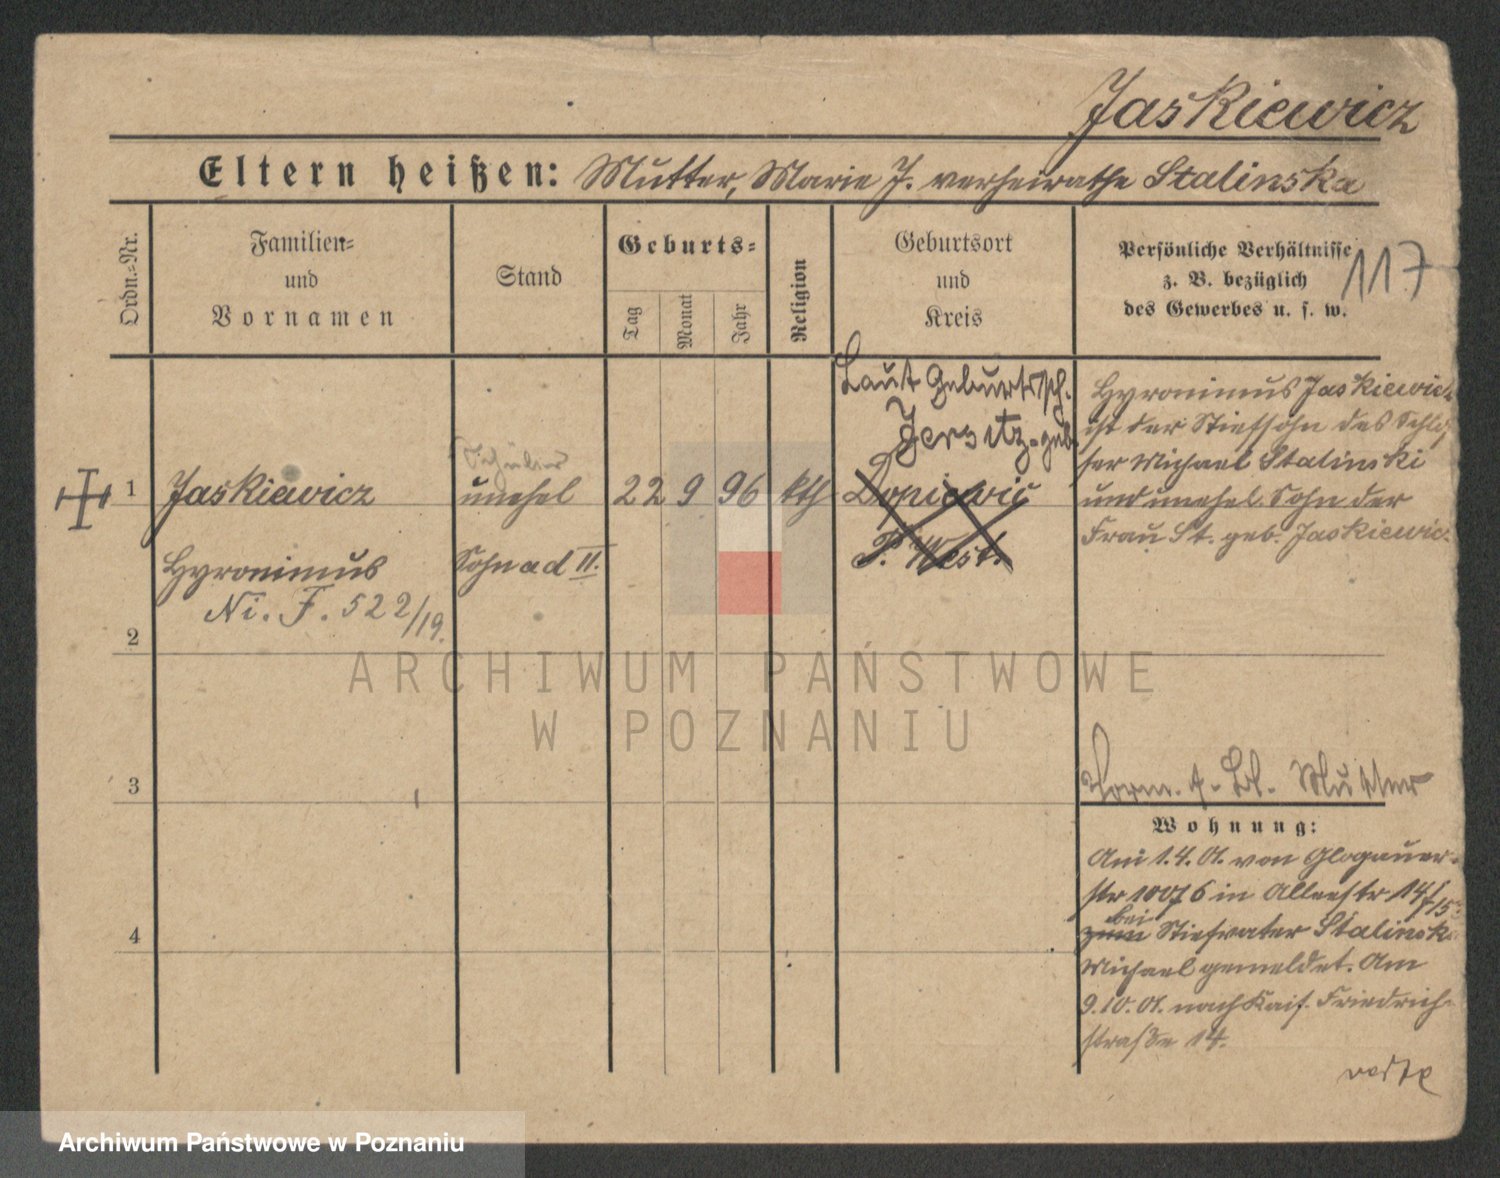 Jaskiewicz
Eltern heißen: Mutter, Marie J. verheirathe Stalinska
Ordn.-Nr.
Familien-
und
Vornamen
Stand
Geburts-
Tag
Monat
Jahr
Religion
Geburtsort
und
Kreis
Persönliche Verhältnisse
z. B. bezüglich
des Gewerbes u. s. w.
117
Laut Geburtssch.
Jersitz geb.
1 Jaskiewicz
Hyronimus
Ni. F. 522/19.
Schüler
unehel
Sohn ad II.
22 9 96 kth
P. West.
Hyronimus Jaskiewicz
ist der Stiefsohn des Schlos
ser Michael Stalinski
und unehel. Sohn der
Frau St. geb. Jaskiewicz
2
3
4
Mutter
Wohnung:
Am 1.4.01. von Glogauer-
str in Alleestr 14
bei
zum Stiefvater Stalinski
Michael gemeldet. Am
9.10.01. nach Kais. Friedrich-
straße 14.
ARCHIWUM PAŃSTWOWE
W POZNANIU
Archiwum Państwowe w Poznaniu